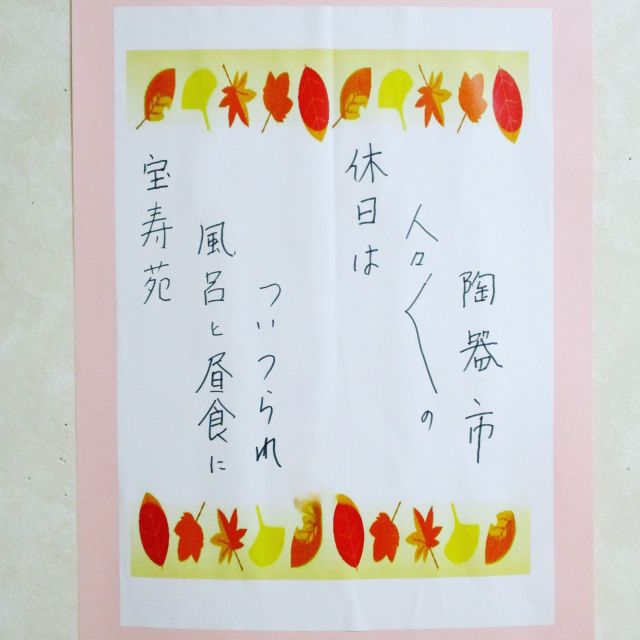 陶器市
人々〱の
休日は
ついつられ
風呂と昼食に
宝寿苑